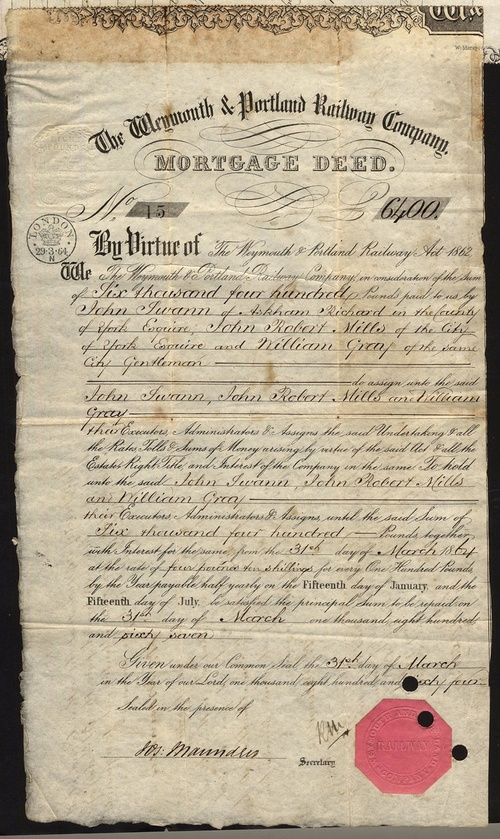 The Weymouth & Portland Railway Company.
MORTGAGE DEED.
No. 15 £6400.
LONDON
29·3·64
N
By Virtue of The Weymouth & Portland Railway Act 1862
We The Weymouth & Portland Railway Company, in consideration of the Sum
of Six thousand four hundred Pounds paid to us by
John Swann of Askham Richard in the County
of York Esquire, John Robert Mills of the City
of York Esquire and William Gray of the same
City Gentleman
do assign unto the said
John Swann, John Robert Mills and William
Gray
their Executors, Administrators & Assigns the said Undertaking & all
the Rates, Tolls & Sums of Money arising by virtue of the said Act & all the
Estate Right Title, and Interest of the Company in the same To hold
unto the said John Swann, John Robert Mills
and William Gray
their Executors, Administrators & Assigns, until the said Sum of
Six thousand four hundred Pounds together
with Interest for the same, from the 31st day of March 1864
at the rate of four pounds ten shillings, for every One Hundred Pounds
by the Year payable half yearly on the Fifteenth day of January, and the
Fifteenth day of July, be satisfied the principal Sum to be repaid on
the 31st day of March one thousand, eight hundred
and sixty seven
Given under our Common Seal the 31st day of March
in the Year of our Lord, one thousand, eight hundred and sixty four
Sealed in the presence of
Jos: Maunders
Secretary.
RAILWAY